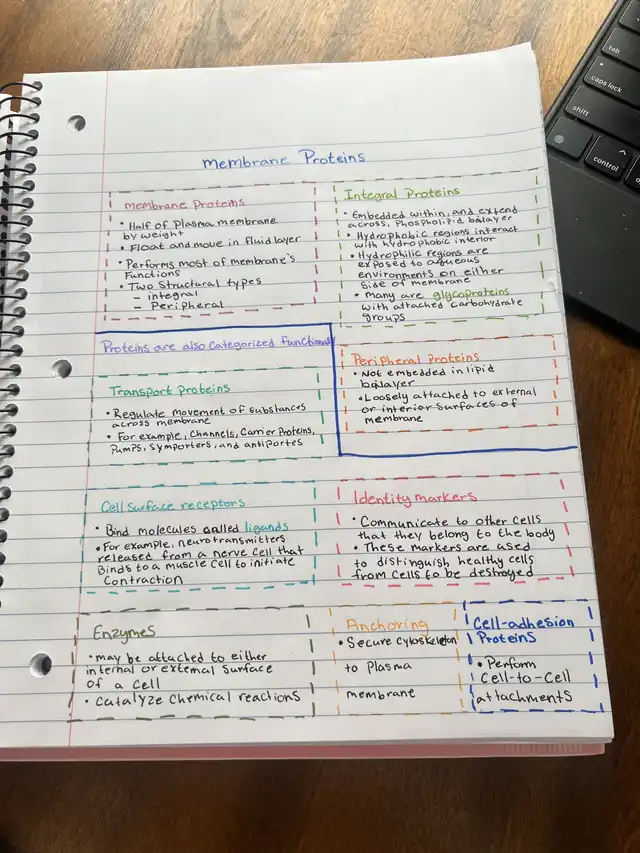 Membrane Proteins
Membrane Proteins
• Half of Plasma membrane
by weight
• Float and move in fluid layer
• Performs most of membrane's
Functions
• Two Structural types
– integral
– Peripheral
Integral Proteins
• Embedded within, and extend
across, Phospholipid balayer
• Hydrophobic regions interact
with hydrophobic interior
• Hydrophilic regions are
exposed to aqueous
environments on either
Side of membrane
• Many are glycoproteins
with attached Carbohydrate
groups
Proteins are also Categorized functional
Peripheral Proteins
• Not embedded in lipid
balayer
• Loosely attached to external
or interior surfaces of
membrane
Transport Proteins
• Regulate movement of substances
across membrane
• For example, Channels, Carrier Proteins,
Pumps, Symporters, and antiportes
Cell Surface receptors
• Bind molecules called ligands
• For example, neurotransmitters
released from a nerve Cell that
Binds to a muscle Cell to initiate
Contraction
Identity markers
• Communicate to other Cells
that they belong to the body
• These markers are used
to distinguish healthy cells
from Cells to be destroyed
Enzymes
• may be attached to either
internal or external Surface
of a Cell
• Catalyze Chemical reactions
Anchoring
• Secure Cytoskeleton
to Plasma
membrane
Cell-adhesion
Proteins
• Perform
Cell-to-Cell
attachments
tab
caps lock
shift
control